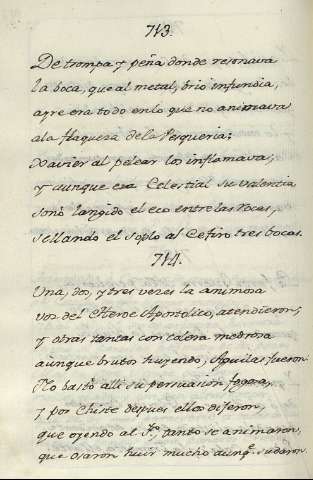 713.
De trompa y peña donde resonava
la boca, que al metal, brio infundia,
ayre era todo en lo que no animava
a la flaqueza de la Pesqueria;
Xavier al pelear los inflamava,
y aunque era Celestial su valentia
sonó langido el eco entre las rocas,
sellando el soplo al Cefiro tres bocas.
714.
Una, dos, y tres veces la animosa
voz del Heroe Apostolico, atendieron,
y otras tantas con colera medrosa
aunque brutos huyendo, Aguilas fueron.
No bastó alli su persuasion fogosa,
y por chiste despues ellos dijeron,
que oyendo al Pe. tanto se animaron,
que osaron huir mucho aunqe. sudaron.